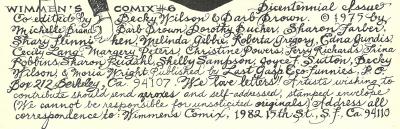 WIMMEN'S COMIX #6 Bicentennial Issue
Co edited by Becky Wilson & Barb Brown. © 1975 by
Michelle Brand Barb Brown Dorothy Bucher, Sharon Farber,
Shary Flenniken, Melinda Gebbie Roberta Gregory, Edna Jundis
Cecily Lang, Margery Peters, Christine Powers Terry Richards, Trina
Robbins, Sharon Rudahl, Shelby Sampson, Joyce Sutton, Becky
Wilson, & Moria Wright Published by Last Gasp Eco Funnies, P.O.
Box 212 Berkeley, Ca. 94107. We love letters! Artists wishing to
contribute should send xeroxes and self-addressed, stamped envelope
(We cannot be responsible for unsolicited originals) Address all
correspondence to: Wimmens Comix, 1982 15th St., S.F. Ca. 94110